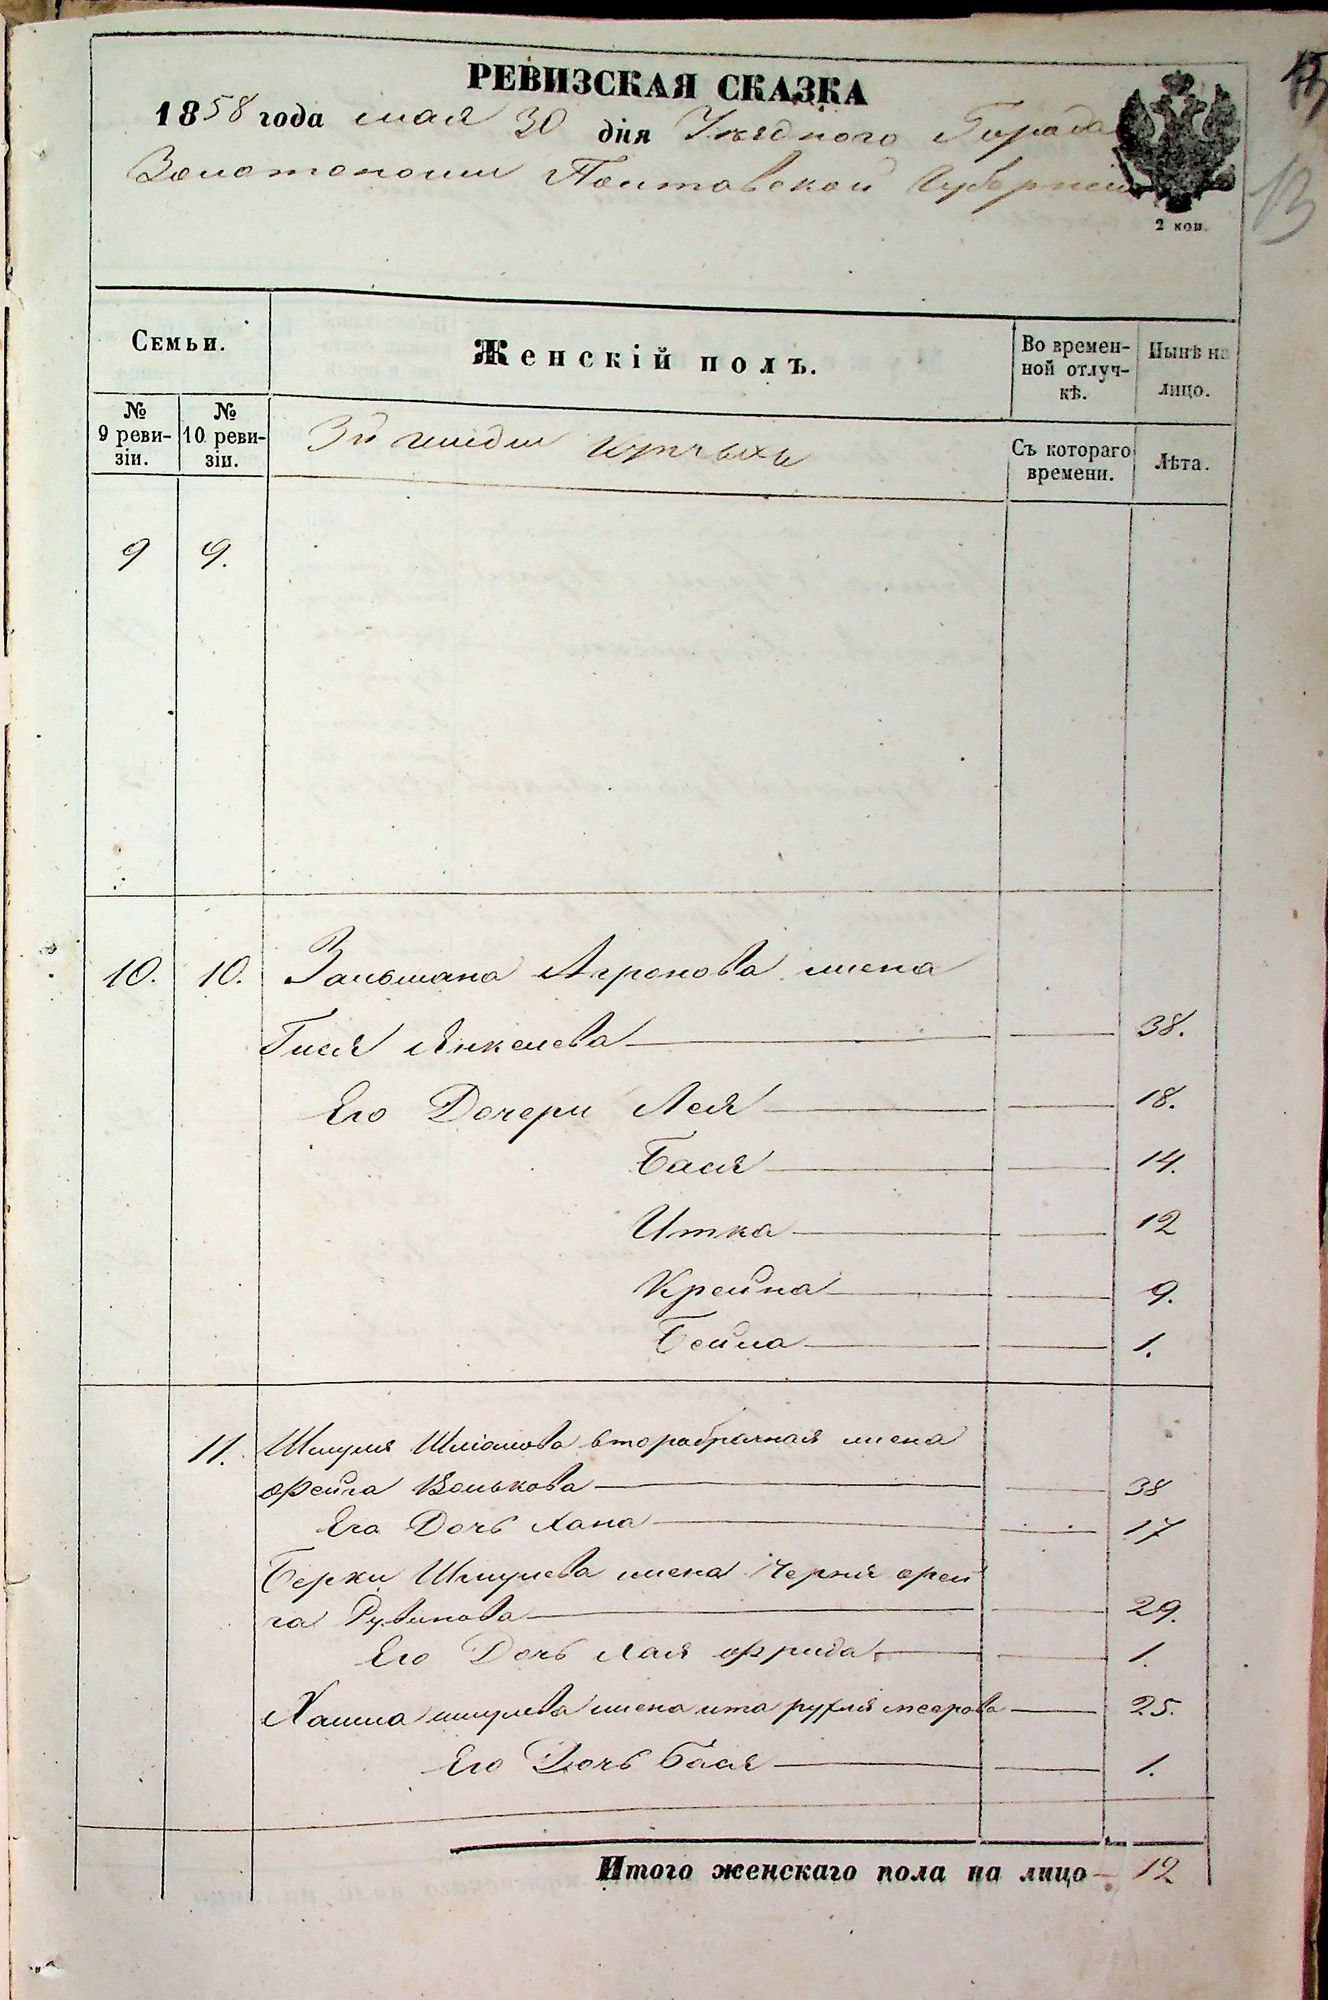 РЕВИЗСКАЯ СКАЗКА
1858 года мая 30 дня Уѣзднаго Города
Золотоноши Полтавской Губернии
2 коп.
13
Семьи.
Женскій полъ.
Во времен-
ной отлуч-
кѣ.
Нынѣ на
лицо.
№
9 реви-
зіи.
№
10 реви-
зіи.
3й гилдии
Съ котораго
времени.
Лѣта.
9 9.
10. 10. Зальмана Агронова жена
Гися Янкелева 38.
Его Дочери Лея 18.
Бася 14.
Итка 12
Крейна 9.
Бейла 1.
11. Шмуля Шліомова вторабрачная жена
Фейга Волькова 38
Его Дочь Хана 17
Берки Шмулева жена Черня Фей
га Рувинова 29.
Его Дочь Хая Фрида 1.
Хаима Шмулева жена ита рухля меерова 25.
Его Дочь Бася 1.
Итого женскаго пола на лицо 12